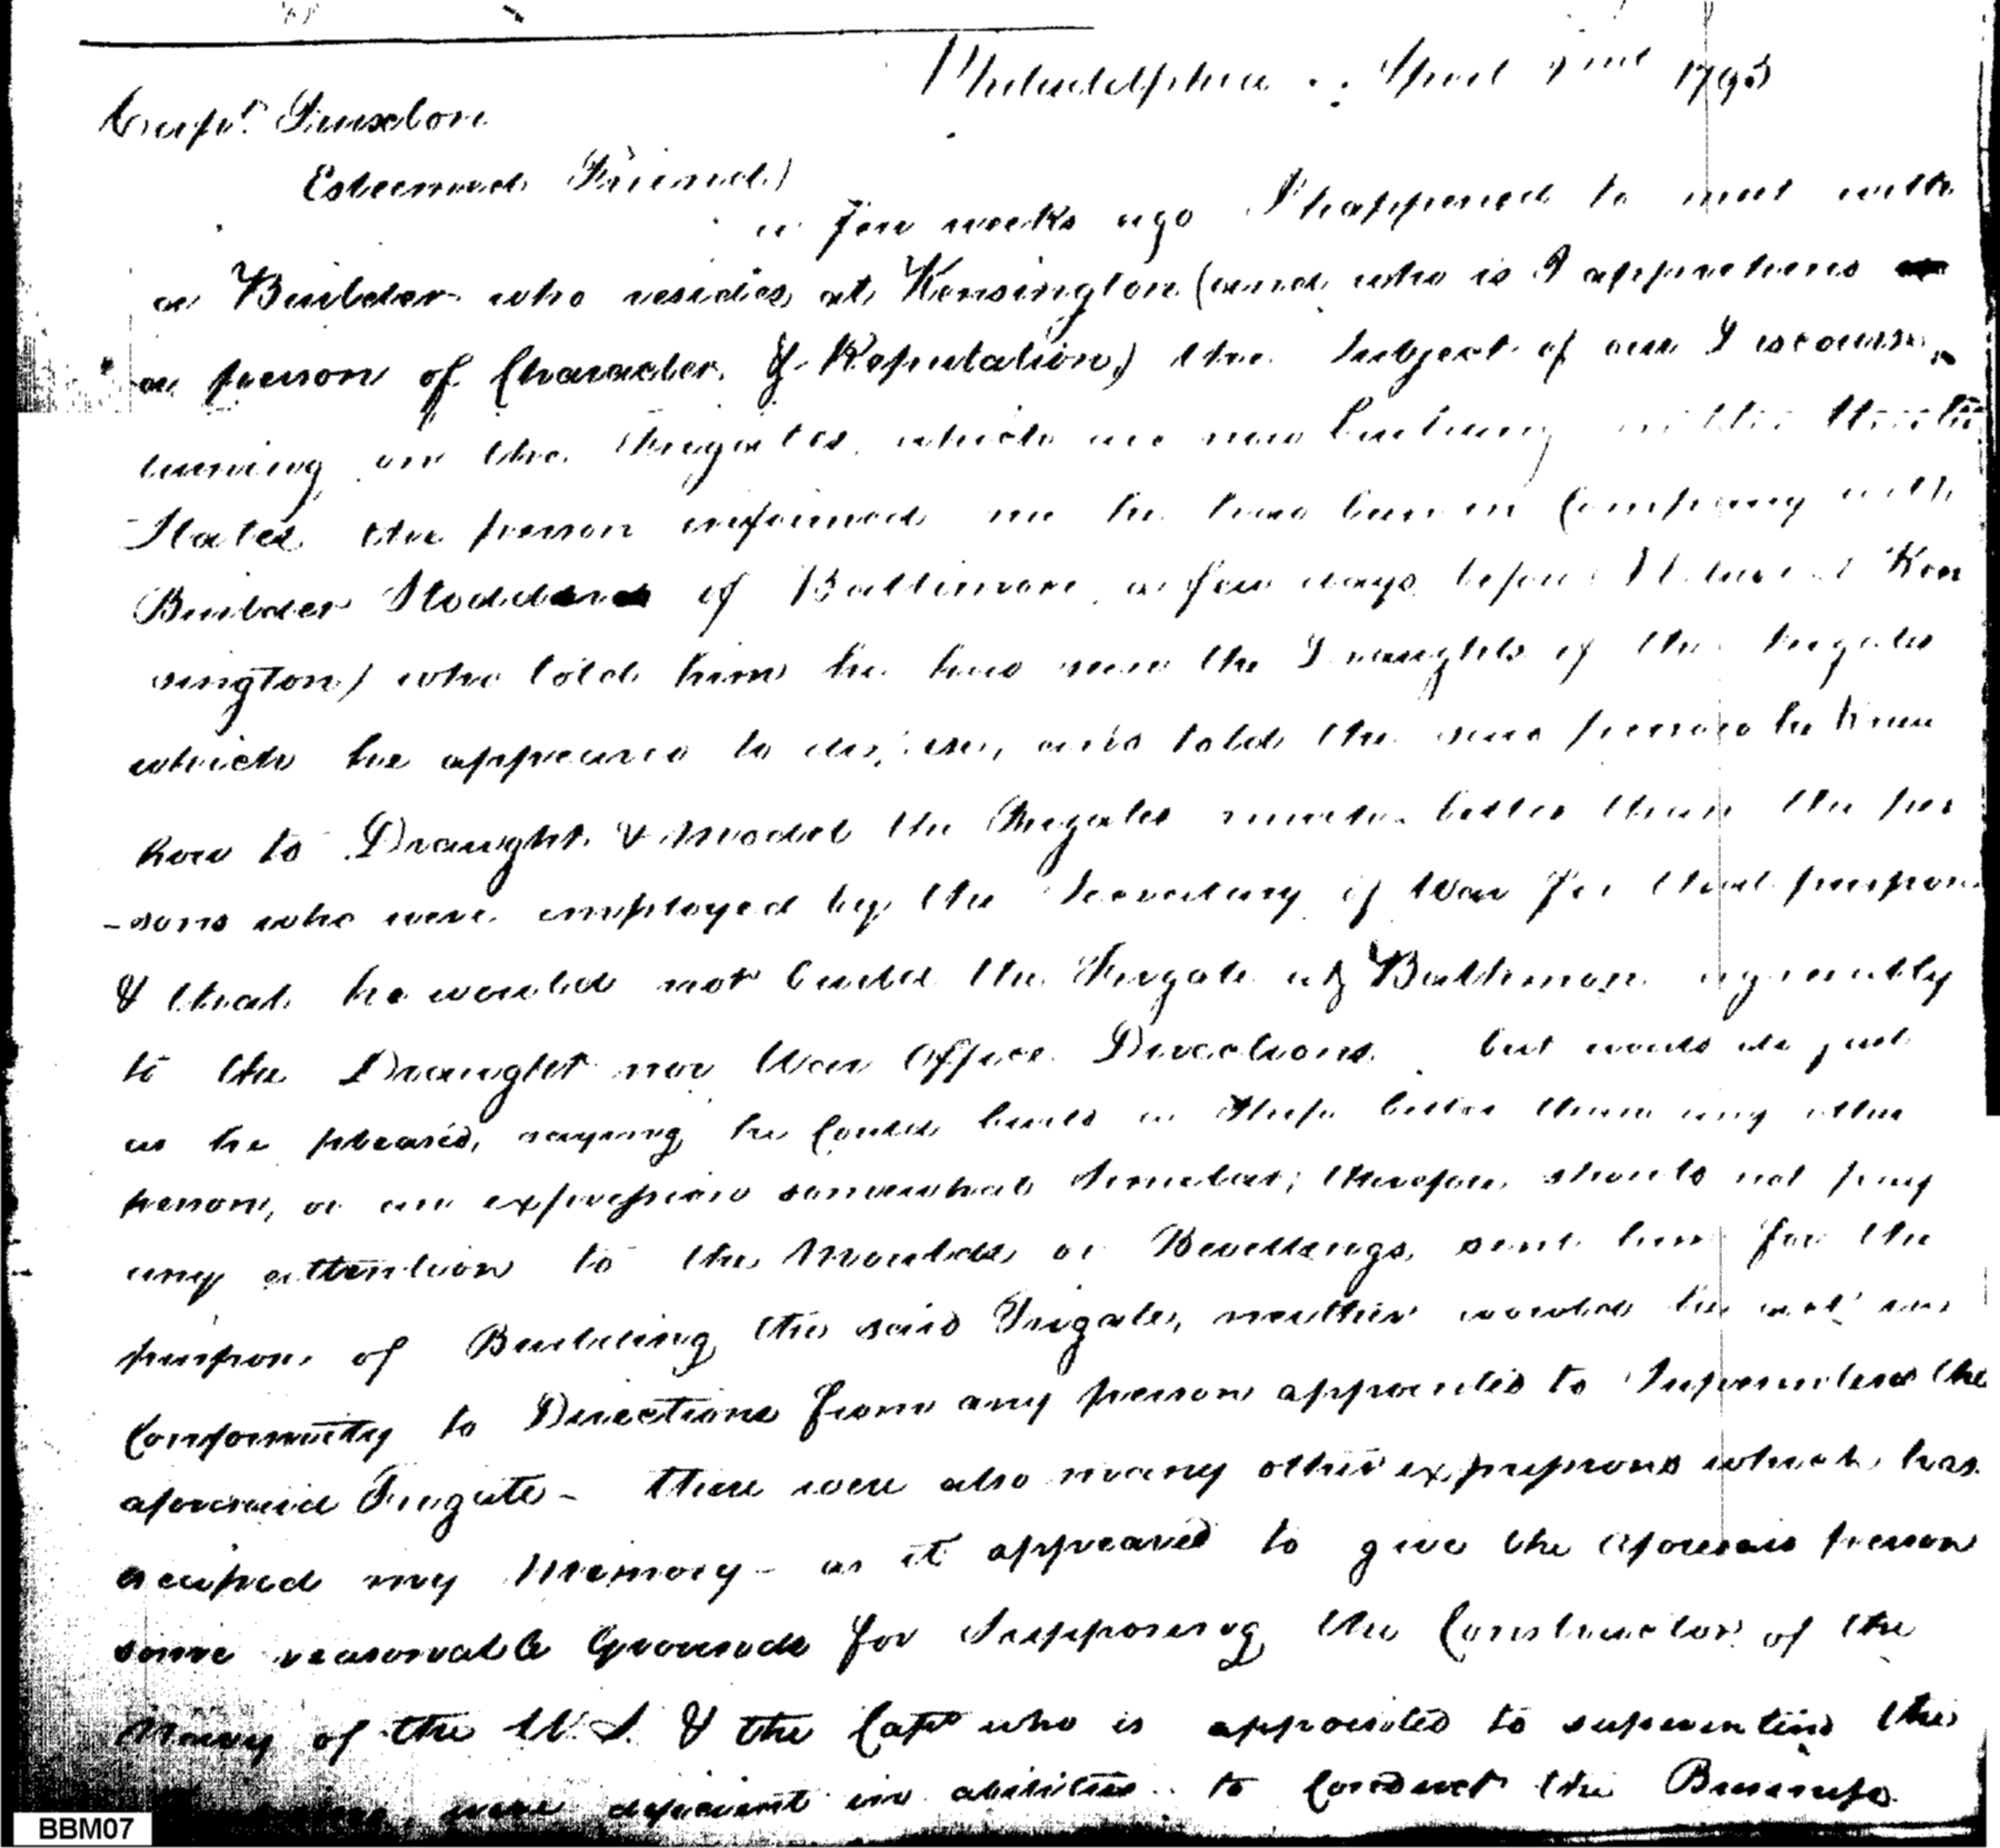 Philadelphia April 2nd 1795
Capt. Truxton
Esteemed Friend)
a few weeks ago I happened to meet with
a Builder who resides at Kensington (and who is I apprehend
a person of Character & Reputation,) the Subject of our Discourse,
turning on the Frigates which are now building in the United
States the person informed me he had been in Company with
Builder Stodder of Baltimore a few days before (I believe at Ken
sington) who told him he had seen the Draughts of the frigates
which he appeared to despise, and told the said person he knew
how to Draught & Model the Frigates much better than the per
-sons who were employed by the Secretary of War for that purpose
& that he would not build the Frigate at Baltimore agreeably
to the Draught nor War Office Directions but would do just
as he pleased, saying he Could build a Ship better than any other
person, or an expression somewhat Similar; therefore should not pay
any attention to the Moulds or Bevellings sent him for the
purpose of Building the said Frigate, neither would he act in
Conformity to Directions from any person appointed to Superintend the
aforesaid Frigate - there were also many other expressions which has
escaped my Memory - as it appeared to give the aforesaid person
some reasonable Grounds for Supposing the Constructor of the
Navy of the U.S. & the Capt who is appointed to superintend the
were deficient in abilities to Conduct the Business
BBM07